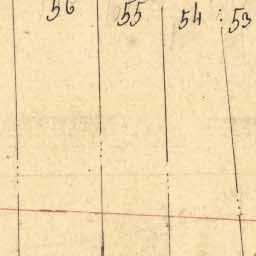 56 55 54 53